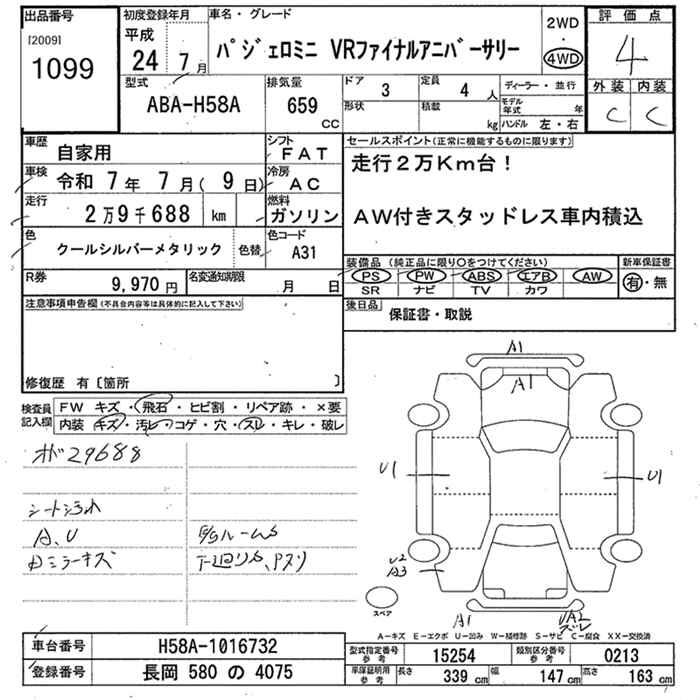 出品番号
[2009]
1099
初度登録年月
平成
24 7 月
車名・グレード
パジェロミニ VRファイナルアニバーサリー
2WD
・
4WD
評価点
4
外装 内装
C C
型式
ABA-H58A
排気量
659
CC
ドア 3
形状
定員 4 人
積載 kg
ディーラー・並行
モデル年式 年
ハンドル 左・右
車歴 自家用
シフト FAT
車検 令和 7年 7月( 9日)
冷房 AC
走行 2万9千688 km
燃料 ガソリン
色 クールシルバーメタリック 色替
色コード A31
R券 9,970 円
名変通知期限 月 日
セールスポイント(正常に機能するものに限ります)
走行2万Km台!
AW付きスタッドレス車内積込
装備品(純正品に限り○をつけてください)
PS PW ABS エアB AW
SR ナビ TV カワ
新車保証書
有・無
後日品 保証書・取説
注意事項申告欄(不具合内容等は具体的に記入して下さい)
修復歴 有〔箇所 〕
検査員記入欄
FW キズ・飛石・ヒビ割・リペア跡・×要
内装 キズ・汚レ・コゲ・穴・スレ・キレ・破レ
29688
シート汚れ
A、U
ミラーキズ
ルームS
下廻りS、
A1
A1
U1
U1
U2
A3
A1
UA2
スレ
スペア
A－キズ E－エクボ U－凹み W－補修跡 S－サビ C－腐食 XX－交換済
車台番号 H58A-1016732
登録番号 長岡 580 の 4075
型式指定番号 参考 15254
類別区分番号 参考 0213
車庫証明用 参考 長さ 339 cm 幅 147 cm 高さ 163 cm